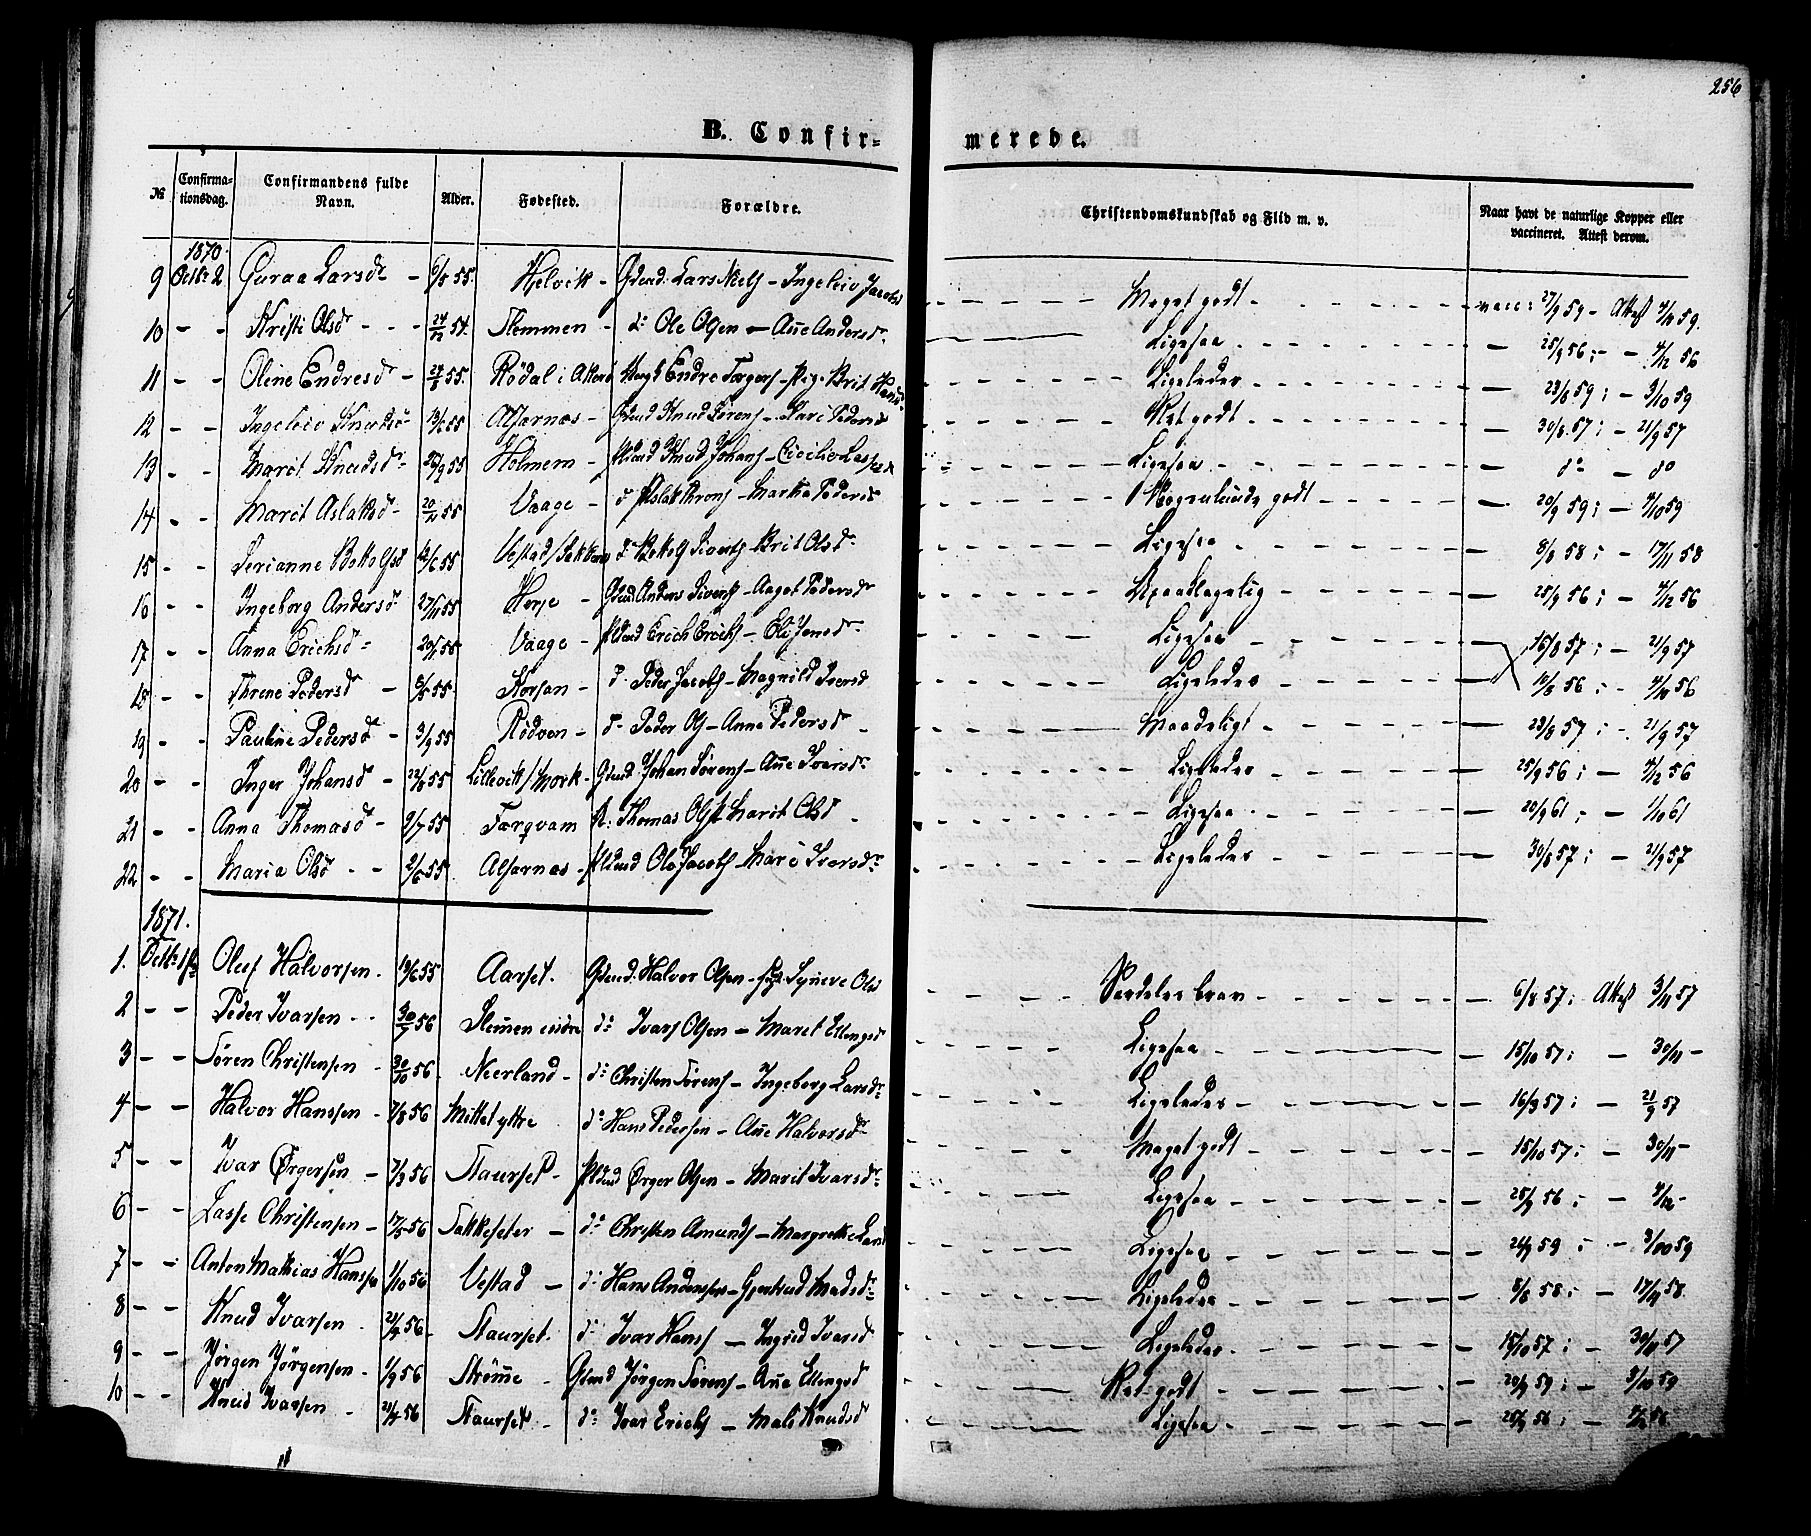 256
B. Confir= merede.
№ Confirma-tionsdag. Confirmandens fulde Navn. Alder. Fødested. Forældre. Christendomskundskab og Flid m. v. Naar havt de naturlige Kopper eller vaccineret. Attest derom.
1870.
9 Octbr 2 Guraa Larsdr - 6/8 55. Hjelvik - Gdmd: Lars Niels - Ingeleiv Jacobsd Meget godt - vacc: 27/9 59 - Attest 7/11 59.
10 - - Kristi Olsdr - - - 27/12 54. Stemmen - do Ole Olsen - Ane Andersdr Ligesaa - 25/9 56; - - 4/12 56
11 - - Oline Endresdr - 27/8 55. Rödal i Endre - Pige Brit Ligeledes - 23/8 59; - 3/10 59
12 - - Ingeleiv Knudsdr 13/6 55 Alfarnæs - Gdmd Knud Sörens - Mari Pedersd Ret godt - 30/8 57; - 21/9 57
13 - - Marit Knudsdr 25/9 55 Holmem - Pldmd Knud Johans - Ligesaa - do - do
14 - - Marit Aslaksdr - 20/11 55 Vaage - do Aslak - Martha Pedersd Nogenlunde godt - 20/9 59; - 4/10 59
15 - - Serianne 12/6 55 Vestad Siverts - Brit Olsdr Ligesaa - 8/8 58; - 17/11 58
16 - - Ingeborg Andersdr 27/11 55 Herje - Gdmd Anders Siverts - Aagot Pedersdr Upaaklagelig - 25/9 56; - 4/12 56
17 - - Anna Erichsdr 20/1 55 Vaage - Pldmd Erich Erichs - Eli Jonsdr Ligesaa - 16/8 57; - 21/9 57
18 - - Threne Pedersdr - 8/5 55. Korsan - do Peder Jacobs - Magnild Iversd Ligeledes - 10/8 56; - 4/12 56
19 - - Pauline Pedersdr - 3/9 55 Rödven - do Peder Ols - Anne Pedersdr Maadeligt - 23/8 57; - 21/9 57
20 - - Inger Johansdr - 22/8 55 Lillevik/Mork - Gdmd: Johan Sörens - Ane Iversdr Ligeledes - 25/9 56; - 4/12 56
21 - - Anna Thomasdr - 9/7 55 Torqvam Thomas Marit Olsd Ligesaa - 20/9 61; - 1/10 61
22 - - Maria Olsdr - - 2/6 55 Alfarnæs - Pldmd Ole Jacobs - Mari Iversdr Ligeledes - 30/8 57; - 21/9 57
1871.
1. Octbr 1ste Oluf Halvorsen - 19/6 55 Aarset. Gdmd: Halvor Olsen - Synneve Olsd Særdeles brav - 6/8 57; Attest 3/11 57
2 - - Peder Ivarsen - - 30/7 56 Stemmen indre do Ivars Olsen - Maret Ellingsd Ligesaa - 15/10 57; - 30/11 -
3 - - Sören Christensen - 30/10 56 Neerland - do Christen Sörens - Ingeborg Larsdr Ligeledes - 16/9 57; - 21/9 57
4 - - Halvor Hanssen - 7/8 56 Mittet yttre do Hans Pedersen - Ane Halvorsdr Meget godt - 15/10 57; - 30/11 -
5 - - Ivar Ørgersen - 7/3 56 Staurset - Pldmd Ørger Olsen - Marit Ivarsdr Ligesaa - 25/9 56; - 4/12 -
6 - - Lasse Christensen - 17/5 56 Sakkeseter - do Christen Amunds - Margrethe Larsd Ligesaa - 24/9 59; - 3/10 59
7 - - Anton Mathias Hanssen 1/10 56 Vestad - do Hans Andersen - Gjertrud Madsdr Ligeledes - 8/8 58; - 17/11 58
8 - - Knud Ivarsen - 21/9 56 - Staurset. do Ivar Hans - Ingrid Ivarsd Ligeledes - 15/10 57; - 30/11 57
9 - - Jörgen Jörgensen - 1/9 56 - Strömme - Gdmd Jörgen Sörens - Ane Ellingsd Ret godt - 20/9 59; - 3/10 59
10 - - Knud Ivarsen - 21/4 56 Staurset - do Ivar Erichs - Mali Knudsd Ligesaa - 25/9 56; - 4/12 56